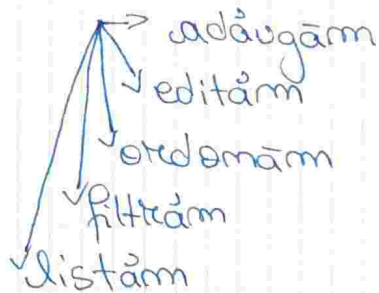 adăugăm
edităm
ordonăm
filtrăm
listăm